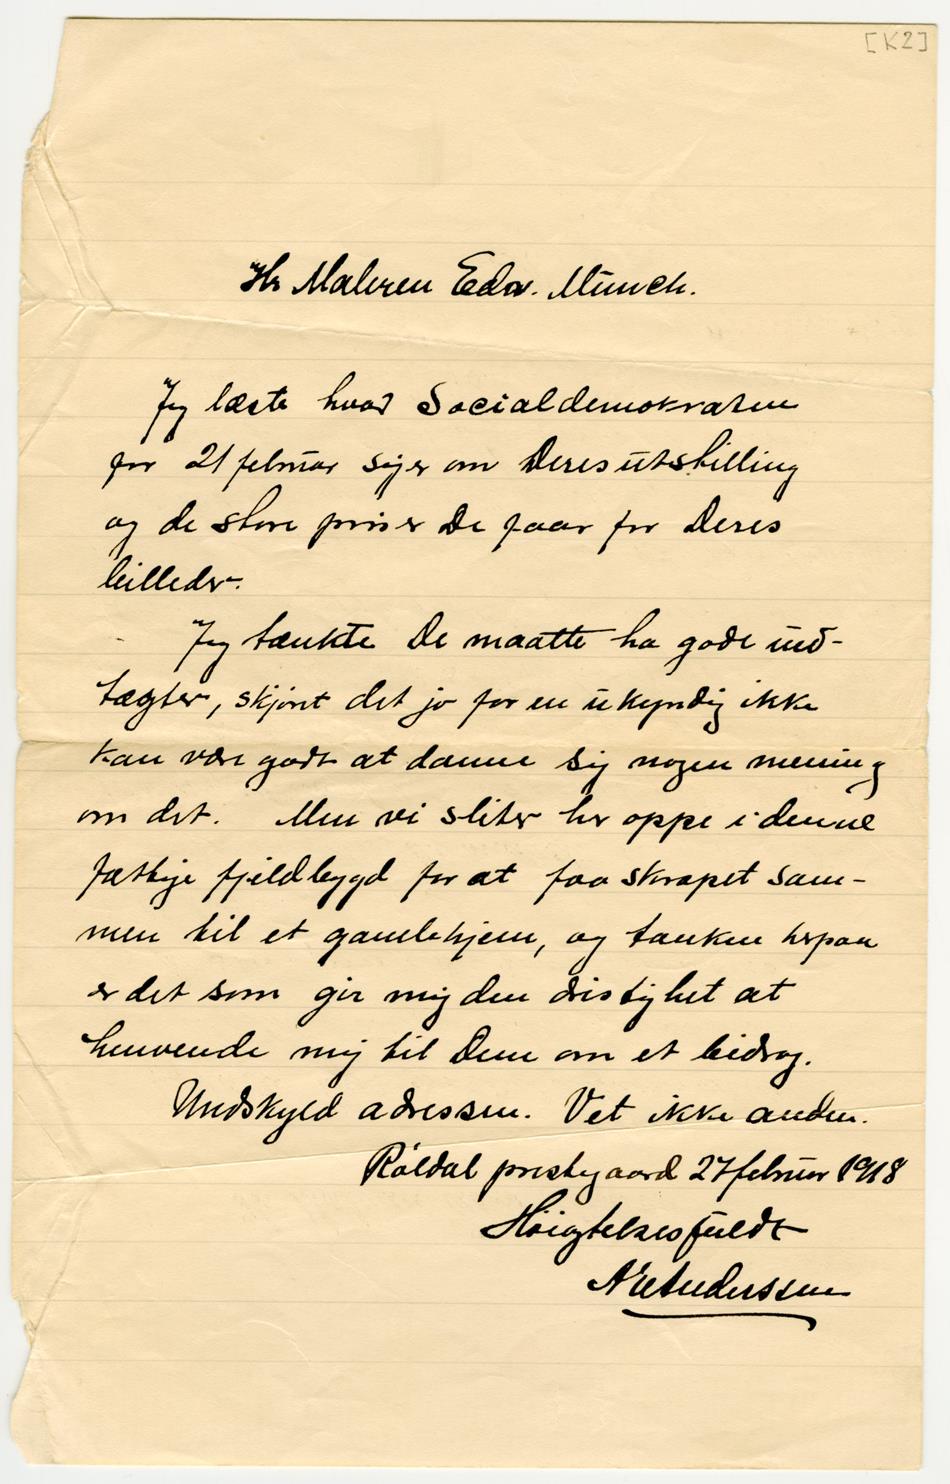 [K2]
Hr Maleren Edv. Munch.
Jeg læste hvad Socialdemokraten
for 21 februar siger om Deres utstilling
og de store priser De faar for Deres
billeder.
Jeg tænkte De maatte ha gode ind-
tægter, skjønt det jo for en ukyndig ikke
kan være godt at danne sig nogen mening
om det. Men vi sliter her oppe i denne
fattige fjeldbygd for at faa skrapet sam-
men til et gamlehjem, og tanken herpaa
er det som gir mig den dristighet at
henvende mig til Dem om et bidrag.
Undskyld adressen. Vet ikke anden.
Røldal prestegaard 27 februar 1918
Høiagtelsesfuldt
Anderssen